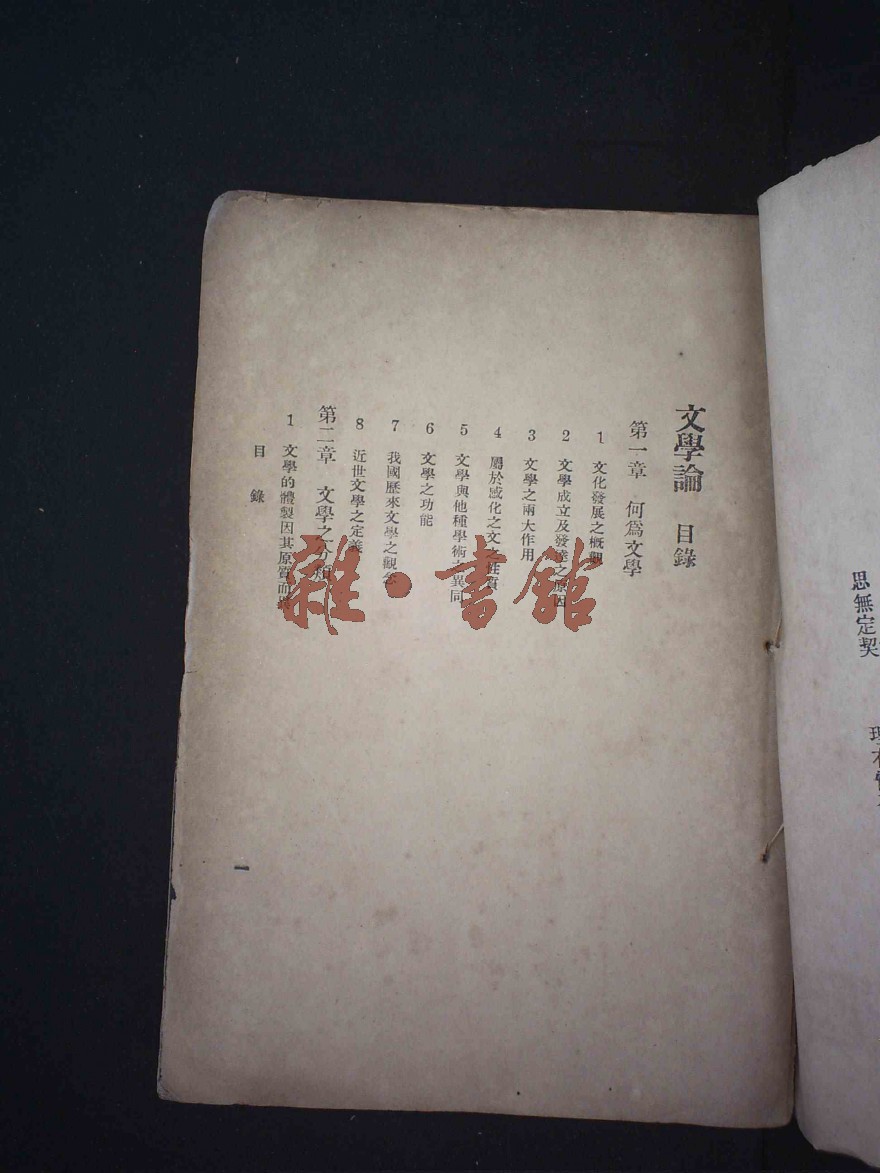 思無定契
文學論 目錄
第一章 何爲文學
1 文化發展之概觀
2 文學成立及發達之原因
3 文學之兩大作用
4 屬於感化之文之性質
5 文學與他種學術之異同
6 文學之功能
7 我國歷來文學之觀念
8 近世文學之定義
第二章 文學之分類
1 文學的體製因其原質而異
目錄
一
雜·書館